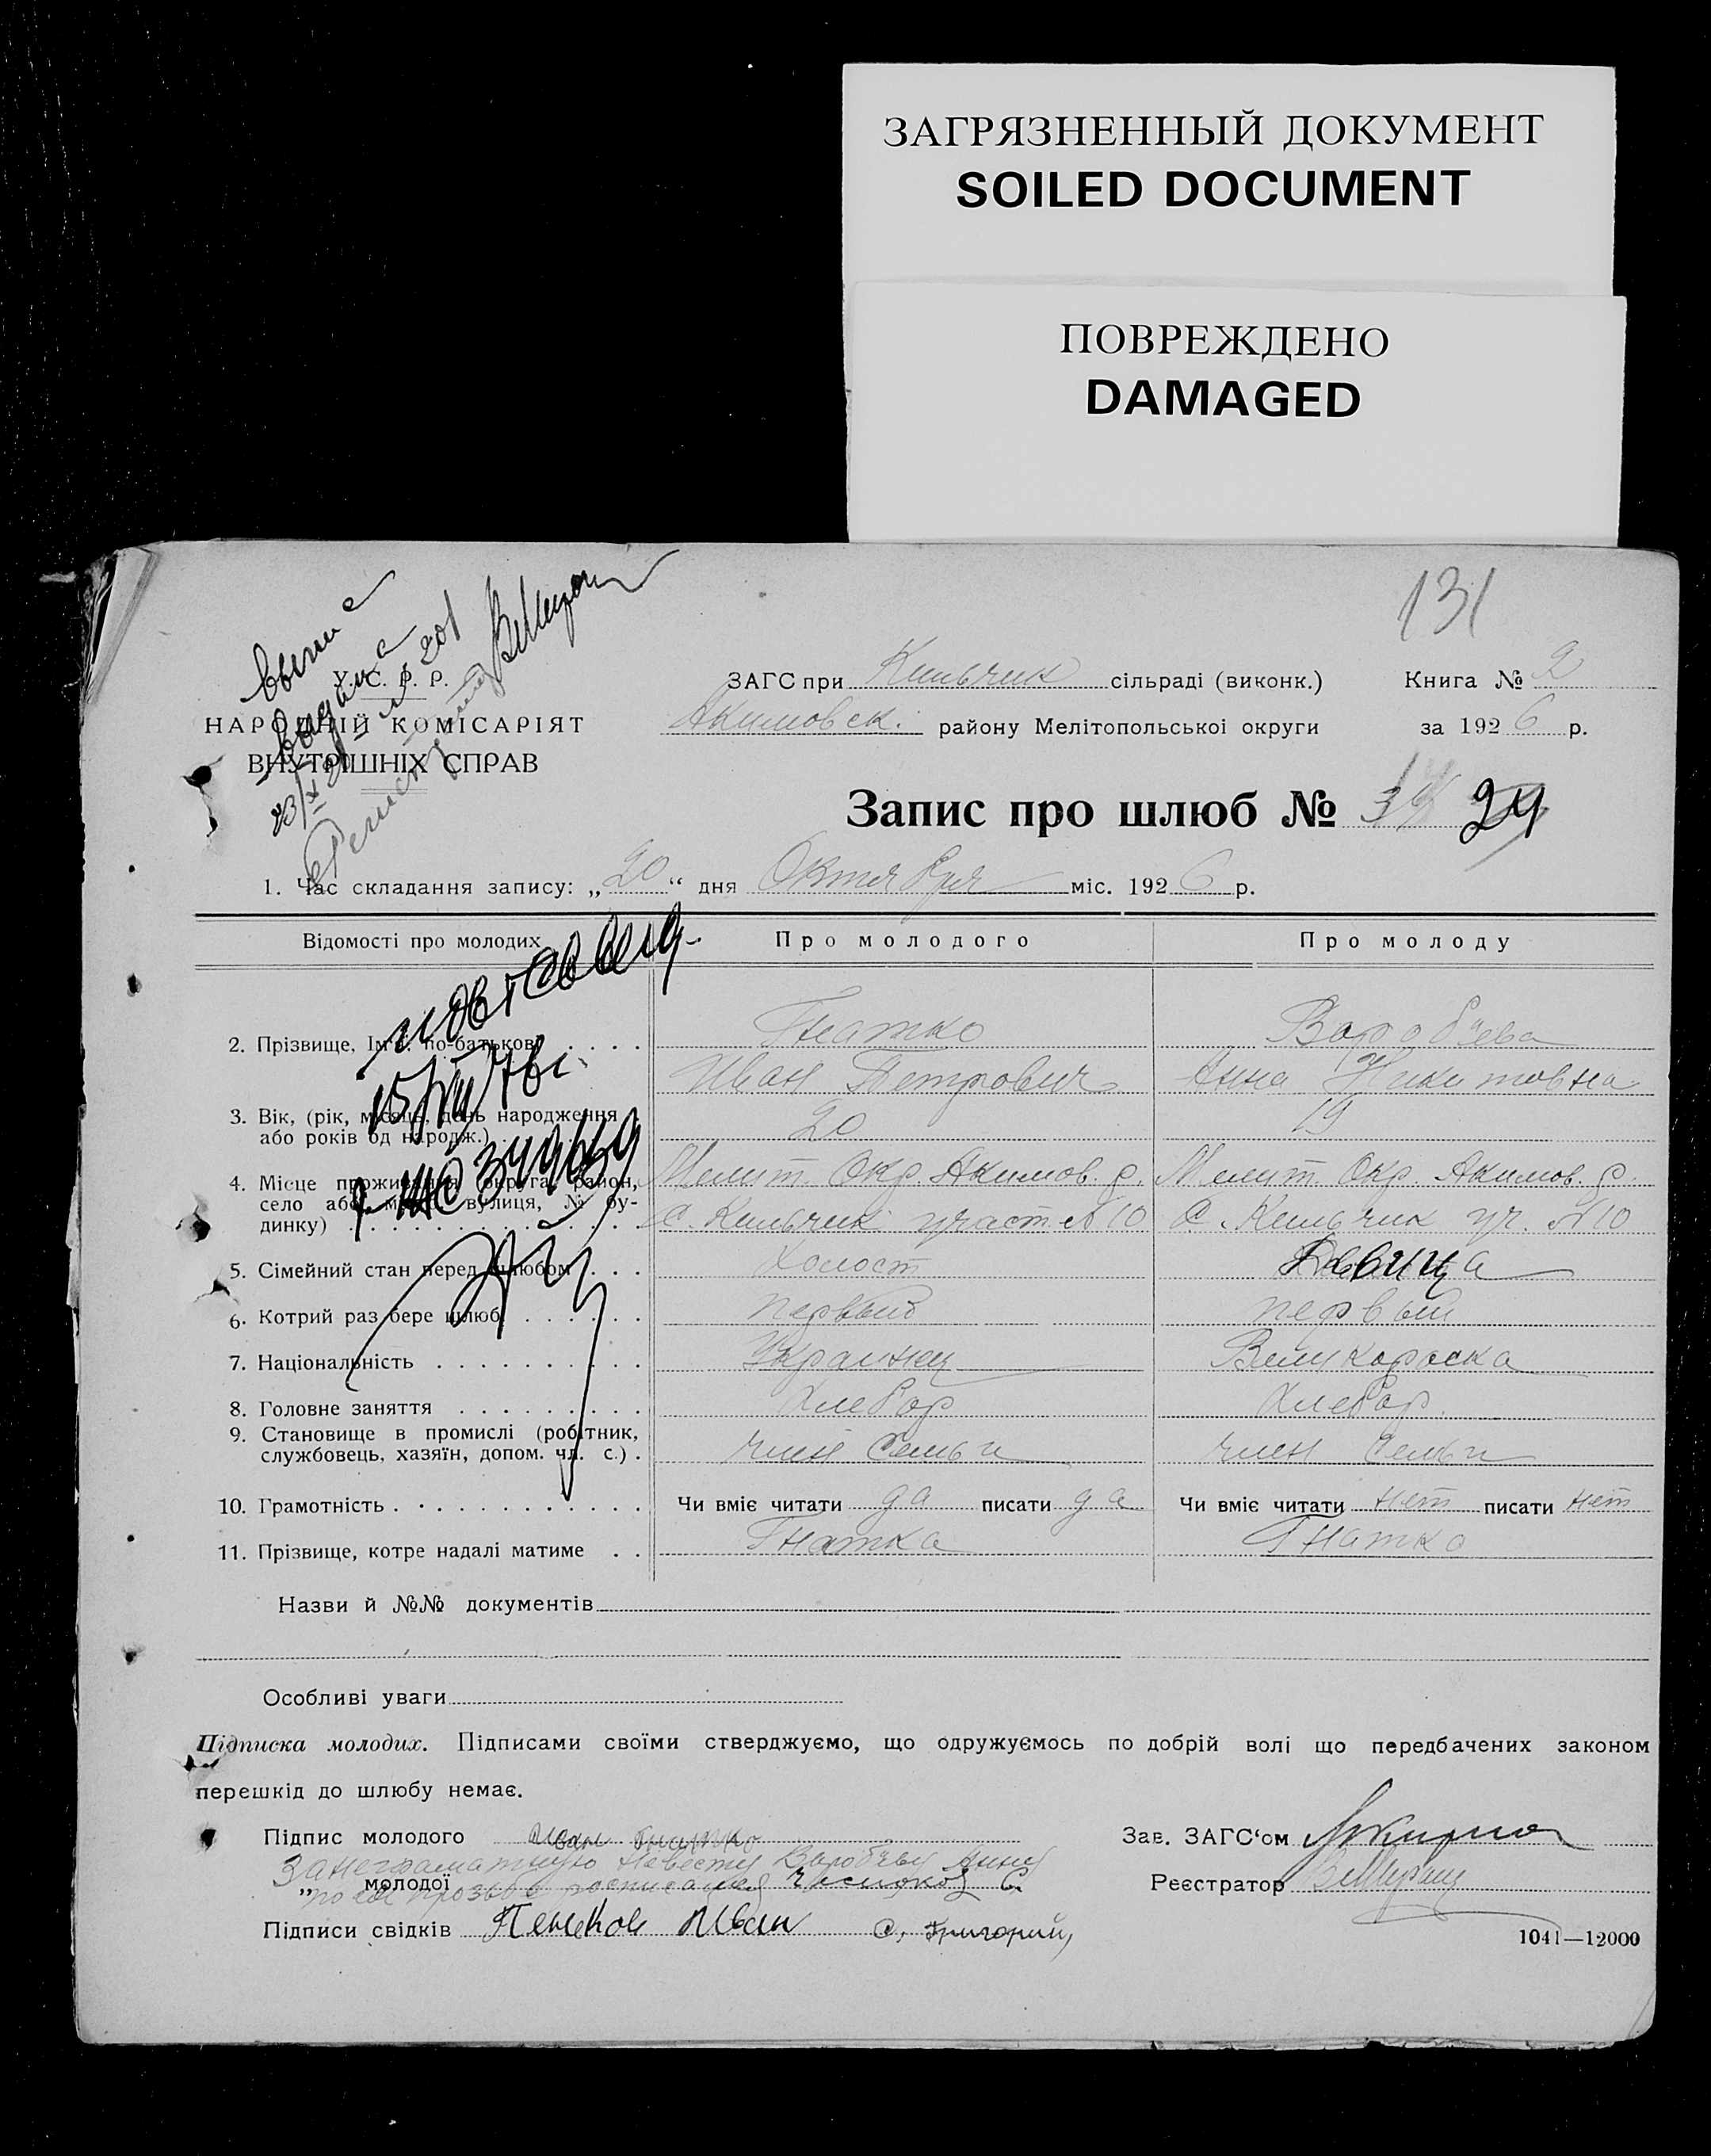 ЗАГРЯЗНЕННЫЙ ДОКУМЕНТ
SOILED DOCUMENT
ПОВРЕЖДЕНО
DAMAGED
131
У. С. Р. Р.
НАРОДНІЙ КОМІСАРІЯТ
ВНУТРІШНІХ СПРАВ
ЗАГС при Кильчик сільраді (виконк.) Книга № 2
Акимовск. району Мелітопольської округи за 1926 р.
Запис про шлюб № 24
1. Час складання запису: „20“ дня Октября міс. 1926 р.
Відомості про молодих Про молодого Про молоду
2. Прізвище, Ім'я, по-батькові . . . . Гнатко Воробьева
Иван Петрович Анна Никитовна
3. Вік, (рік, місяць, день народження 20 19
або років од народж.)
4. Місце проживання (округа, район, Мелит. Окр. Акимов. р. Мелит. Окр. Акимов. р.
село або місто, вулиця, № бу-
динку) С. Кильчик участ. № 10 С. Кильчик уч. № 10
5. Сімейний стан перед шлюбом . . . Холост Девица
6. Котрий раз бере шлюб . . . . . . Первый первый
7. Національність . . . . . . . . . . Украинец Великороска
8. Головне заняття . . . . . . . . . Хлебор Хлебор.
9. Становище в промислі (робітник,
службовець, хазяїн, допом. чл. с.) . член Семьи член Семьи
10. Грамотність . . . . . . . . . . . . Чи вміє читати да писати да Чи вміє читати нет писати нет
11. Прізвище, котре надалі матиме . . Гнатка Гнатко
Назви й №№ документів
Особливі уваги
Підписка молодих. Підписами своїми стверджуємо, що одружуємось по добрій волі що передбачених законом
перешкід до шлюбу немає.
Підпис молодого Иван Гнатко Зав. ЗАГС'ом
За неграматную Невесту Воробьеву Анну
„ молодої по ее прозьбе росписался С. Реєстратор
Підписи свідків Пенков Иван С. Григорий,
1041—12000